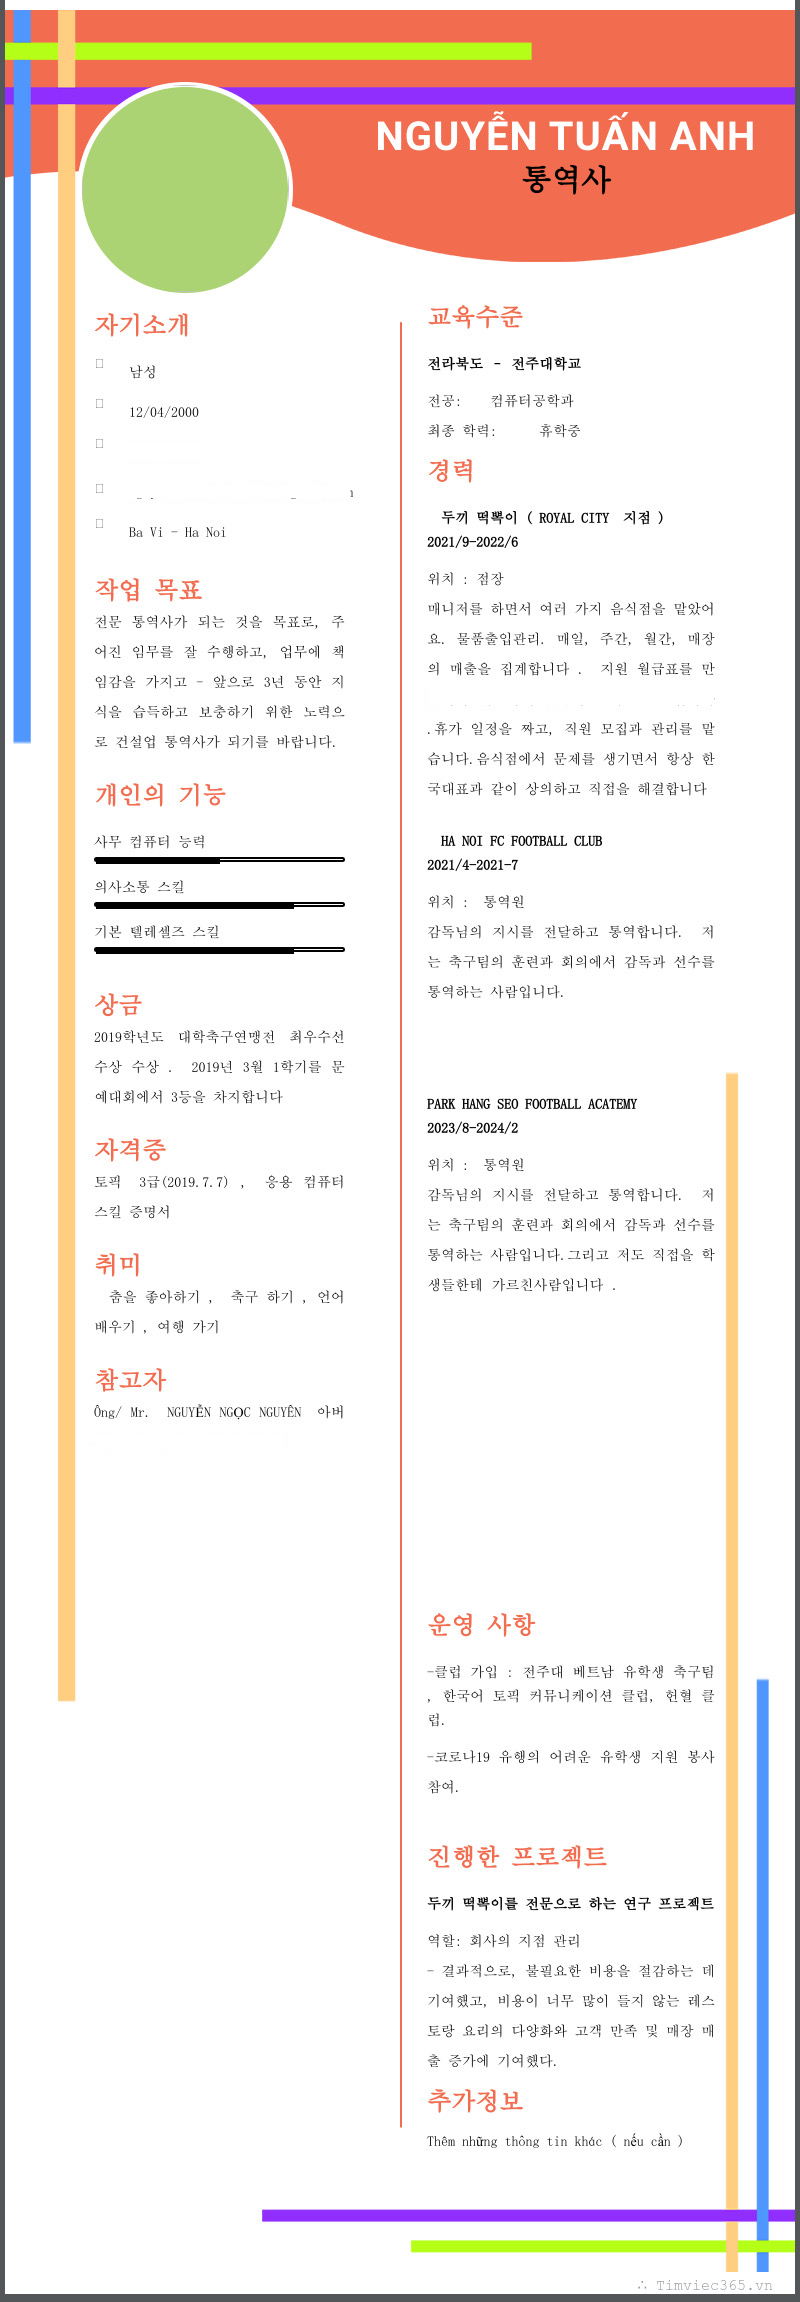 NGUYỄN TUẤN ANH
통역사
자기소개
남성
12/04/2000
Ba Vi - Ha Noi
작업 목표
전문 통역사가 되는 것을 목표로, 주
어진 임무를 잘 수행하고, 업무에 책
임감을 가지고 - 앞으로 3년 동안 지
식을 습득하고 보충하기 위한 노력으
로 건설업 통역사가 되기를 바랍니다.
개인의 기능
사무 컴퓨터 능력
의사소통 스킬
기본 텔레셀즈 스킬
상금
2019학년도 대학축구연맹전 최우수선
수상 수상 . 2019년 3월 1학기를 문
예대회에서 3등을 차지합니다
자격증
토픽 3급(2019.7.7) , 응용 컴퓨터
스킬 증명서
취미
춤을 좋아하기 , 축구 하기 , 언어
배우기 , 여행 가기
참고자
Ông/ Mr. NGUYỄN NGỌC NGUYÊN 아버
교육수준
전라북도 - 전주대학교
전공: 컴퓨터공학과
최종 학력: 휴학중
경력
두끼 떡뽁이 ( ROYAL CITY 지점 )
2021/9-2022/6
위치 : 점장
매니저를 하면서 여러 가지 음식점을 맡았어
요. 물품출입관리. 매일, 주간, 월간, 매장
의 매출을 집계합니다 . 지원 월급표를 만
.휴가 일정을 짜고, 직원 모집과 관리를 맡
습니다.음식점에서 문제를 생기면서 항상 한
국대표과 같이 상의하고 직접을 해결합니다
HA NOI FC FOOTBALL CLUB
2021/4-2021-7
위치 : 통역원
감독님의 지시를 전달하고 통역합니다. 저
는 축구팀의 훈련과 회의에서 감독과 선수를
통역하는 사람입니다.
PARK HANG SEO FOOTBALL ACATEMY
2023/8-2024/2
위치 : 통역원
감독님의 지시를 전달하고 통역합니다. 저
는 축구팀의 훈련과 회의에서 감독과 선수를
통역하는 사람입니다.그리고 저도 직접을 학
생들한테 가르친사람입니다 .
운영 사항
-클럽 가입 : 전주대 베트남 유학생 축구팀
, 한국어 토픽 커뮤니케이션 클럽, 헌혈 클
럽.
-코로나19 유행의 어려운 유학생 지원 봉사
참여.
진행한 프로젝트
두끼 떡뽁이를 전문으로 하는 연구 프로젝트
역할: 회사의 지점 관리
- 결과적으로, 불필요한 비용을 절감하는 데
기여했고, 비용이 너무 많이 들지 않는 레스
토랑 요리의 다양화와 고객 만족 및 매장 매
출 증가에 기여했다.
추가정보
Thêm những thông tin khác ( nếu cần )
∴ Timviec365.vn